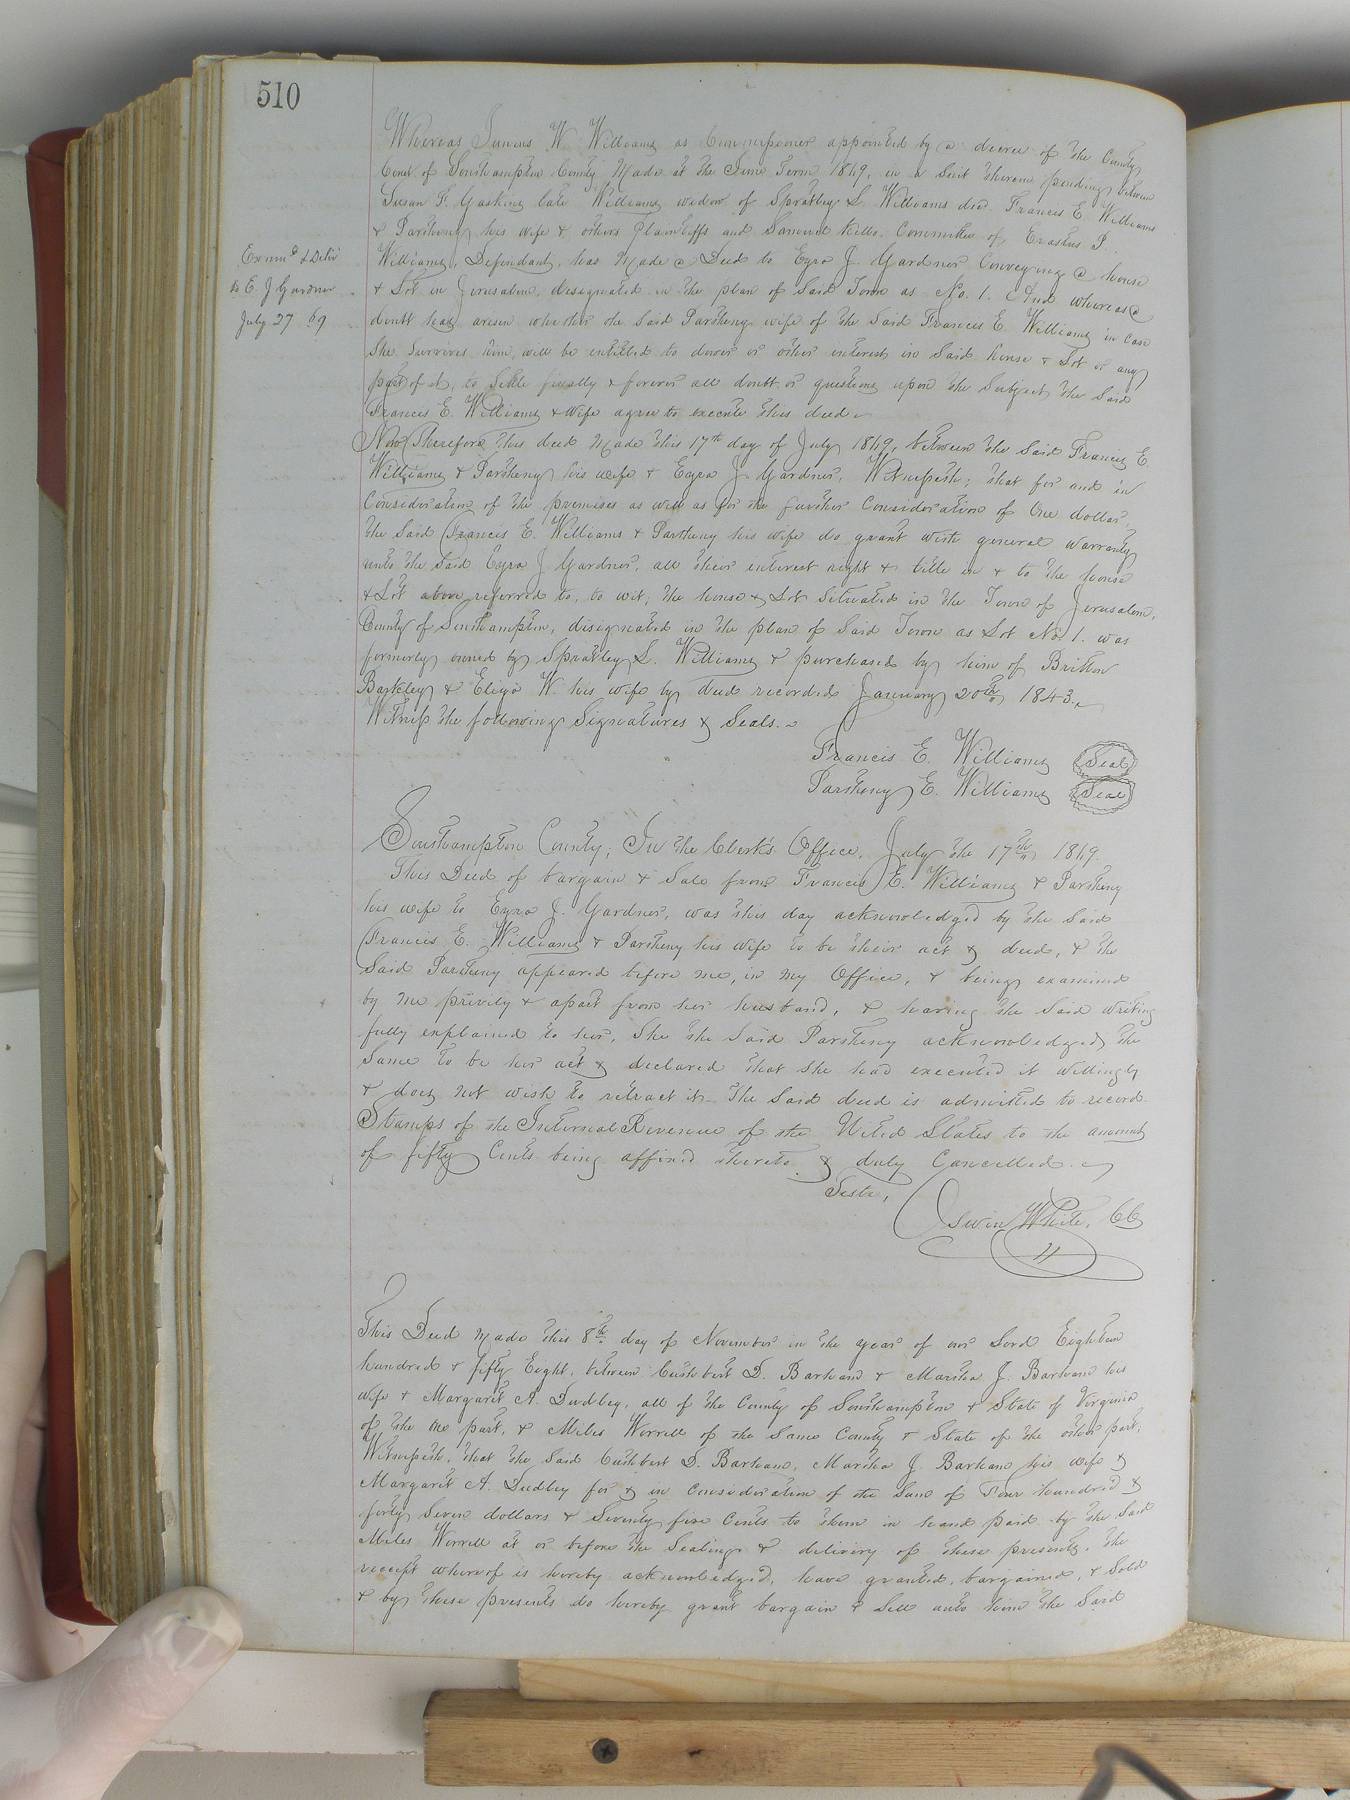 510
Whereas James W. Williams as Commissioner appointed by a decree of the County
Court of Southampton County made at the June Term 1869, in a Suit therein pending between
Susan F. Gaskins late Williams widow of Spratley S. Williams decd Francis E. Williams
& Partheny his wife & others Plaintiffs and Samuel Kello Committee of Erastus P.
Williams, Defendant, has made a Deed to Ezra J. Gardner Conveying a house
& Lot in Jerusalem, designated in the plan of Said Town as No. 1. And whereas a
doubt has arisen whether the Said Partheny wife of the Said Francis E. Williams in case
She Survives him, will be entitled to dower or other interest in Said house & Lot or any
part of it, to Settle finally & forever all doubt or questions upon the Subject the Said
Francis E. Williams & wife agree to execute this deed
Exmnd & Deliv
to E. J Gardner
July 27 69
Now Therefore This deed made this 17th day of July 1869, between the Said Francis E.
Williams & Partheny his wife & Ezra J. Gardner, Witnesseth; that for and in
Consideration of the premises as well as for the further Consideration of One dollar,
the Said Francis E. Williams & Partheny his wife do grant with general warranty
unto the Said Ezra J Gardner, all their interest right & title in & to the house
& Lot above referred to, to wit; the house & Lot Situated in the Town of Jerusalem,
County of Southampton, designated in the plan of Said Town as Lot No. 1. was
formerly owned by Spratley S. Williams & purchased by him of Britton
Barkley & Eliza W. his wife by deed recorded January 20th 1843.
Witness the following Signatures & Seals.
Francis E. Williams Seal
Partheny E. Williams Seal
Southampton County; In the Clerk's Office, July the 17th 1869.
This Deed of bargain & Sale from Francis E. Williams & Partheny
his wife to Ezra J. Gardner, was this day acknowledged by the Said
Francis E. Williams & Partheny his wife to be their act & deed, & the
Said Partheny appeared before me, in my Office, & being examined
by me privily & apart from her husband, & having the Said writing
fully explained to her, She the Said Partheny acknowledged the
Same to be her act & declared that She had executed it willingly
& does not wish to retract it. The Said deed is admitted to record
Stamps of the Internal Revenue of the Uited States to the amount
of fifty Cents being affixed thereto & duly Cancelled.
Teste,
Edwin White, CC
This Deed made this 8th day of November in the year of our Lord Eighteen
hundred & fifty Eight, between Cuthbert D. Barham & Martha J. Barham his
wife & Margaret A. Dudley, all of the County of Southampton & State of Virginia
of the one part, & Miles Worrell of the Same County & State of the other part,
Witnesseth, that the Said Cuthbert D. Barham, Martha J. Barham his wife &
Margaret A. Dudley for & in consideration of the Sum of Four hundred &
forty Seven dollars & Seventy five Cents to them in hand paid by the Said
Miles Worrell at or before the Sealing & delivery of these presents, the
receipt whereof is hereby acknowledged, have granted, bargained, & Sold
& by these presents do hereby grant bargain & Sell unto him the Said